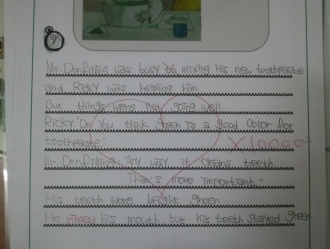 9
Mr. Donfixing was busy mixing his new toothpaste
and Ricky was helping him.
But things were not going well.
Ricky:"Do you think green is a good color for
toothpaste"
X10000
Mr. Donfixing:"Any way it cleans teeth
That's more important."
His teeth were bright green
He his mouth but his teeth stayed green